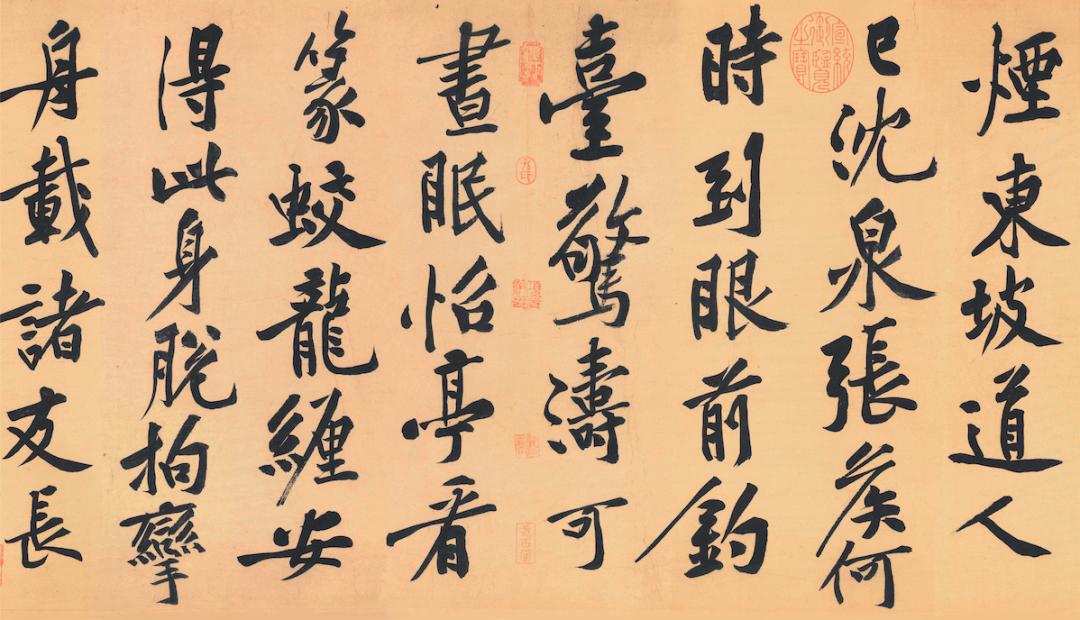 煙東坡道人
已沈泉張矦何
時到眼前釣
臺驚濤可
晝眠怡亭看
篆蛟龍纏安
得此身脫拘攣
舟載諸友長
宣統御覽之寶